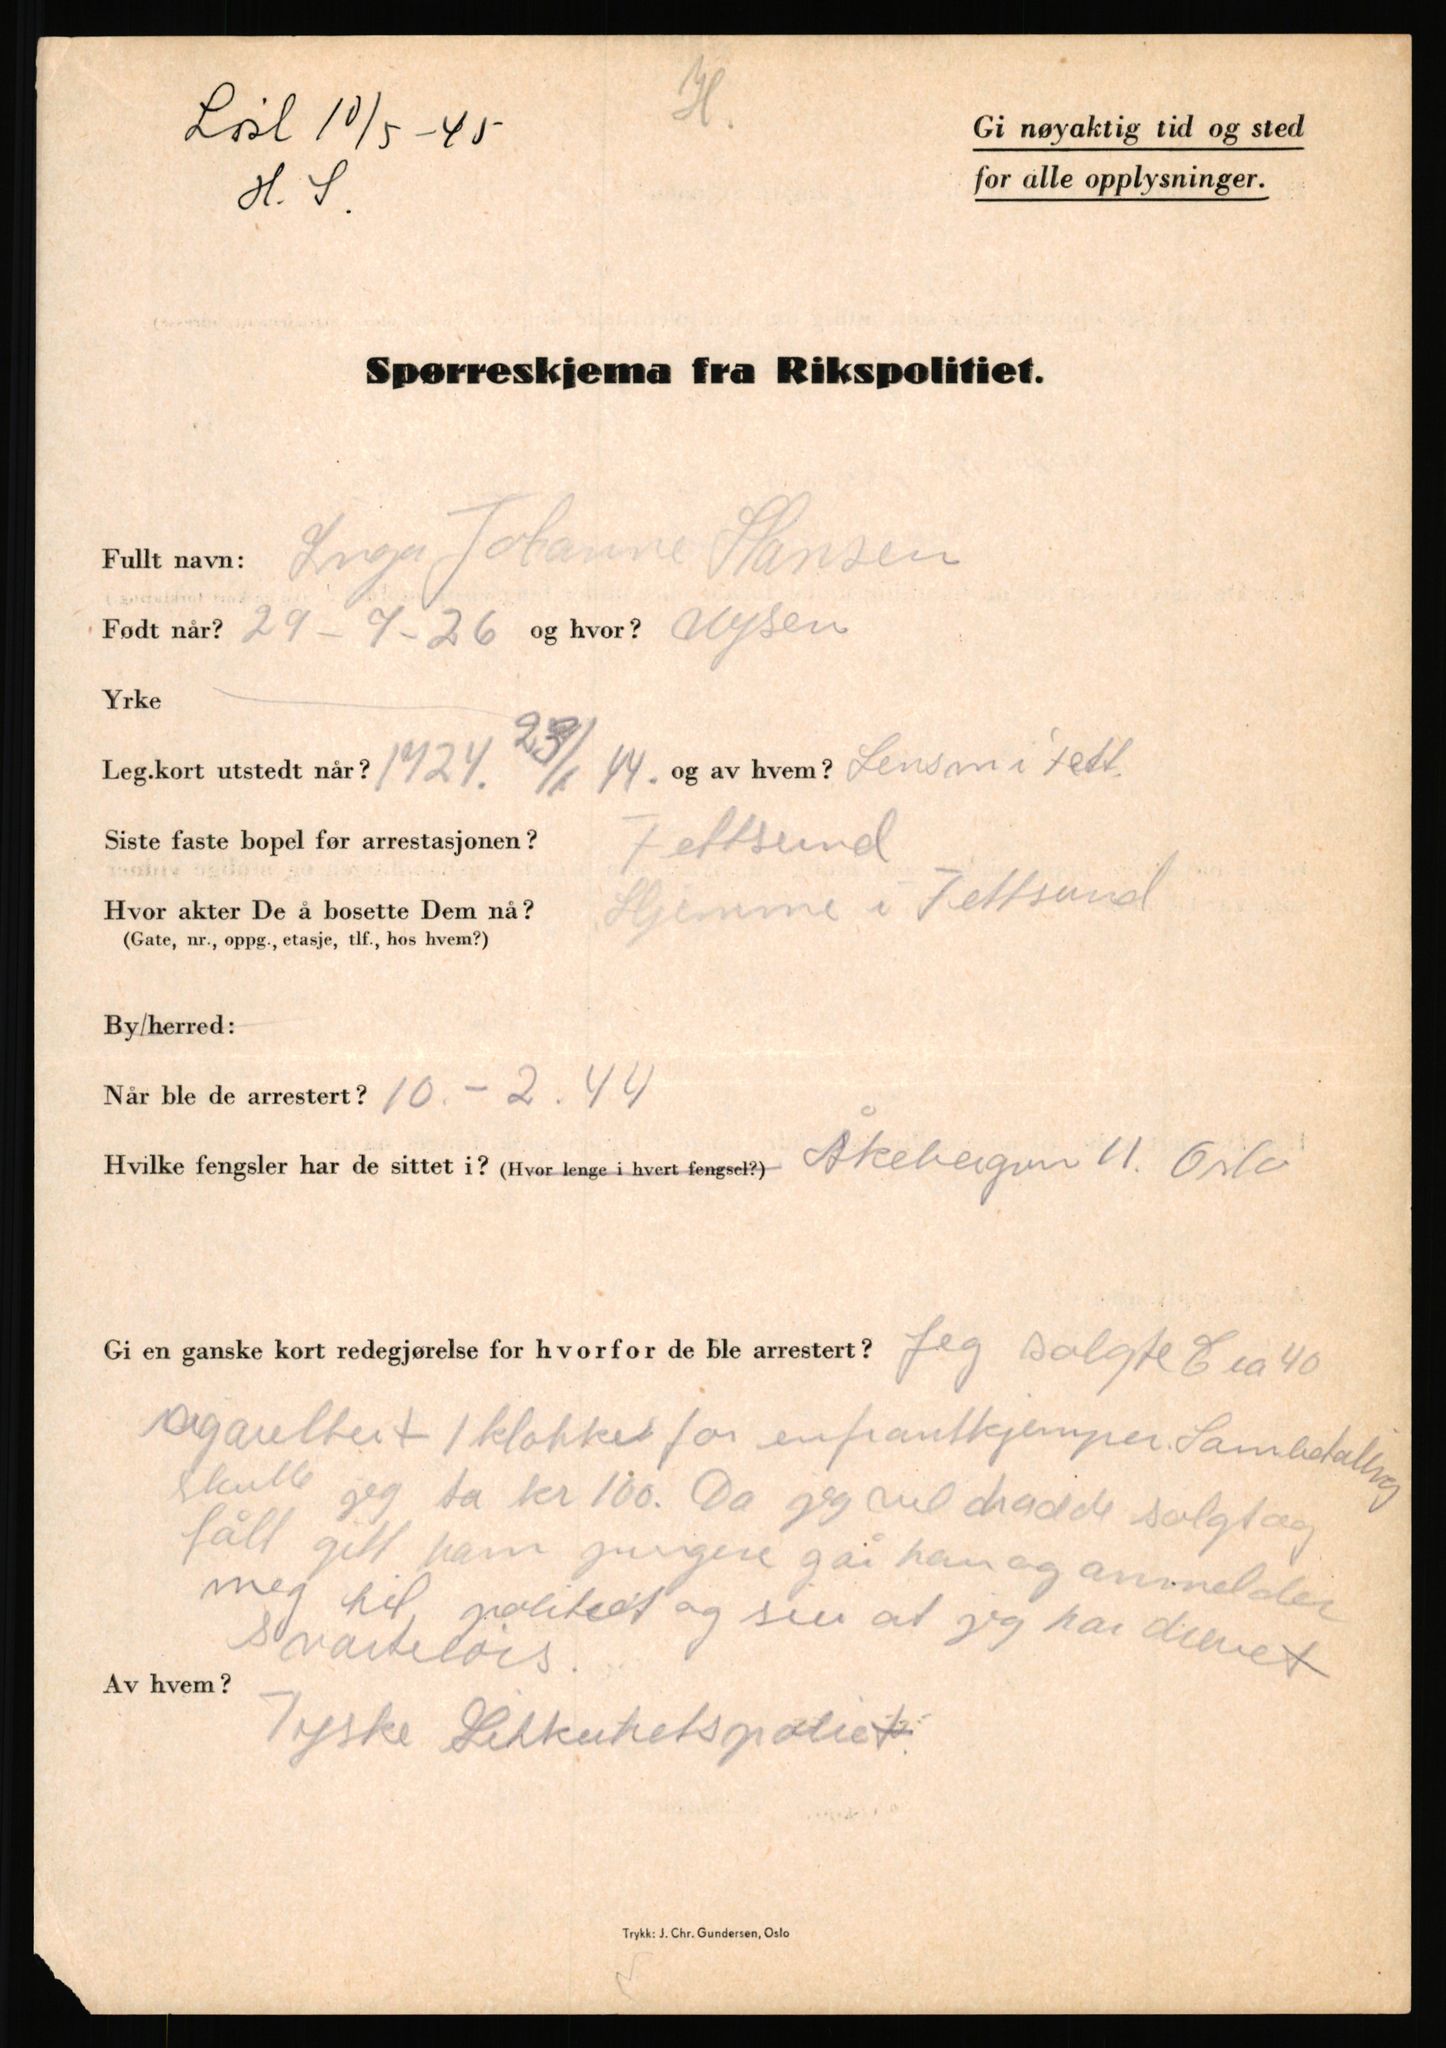 H.
Løsl 10/5 - 45
H. S.
Gi nøyaktig tid og sted
for alle opplysninger.
Spørreskjema fra Rikspolitiet.
Fullt navn: Inga Johanne Hansen
Født når? 29 - 7 - 26 og hvor? Nysen
Yrke
Leg.kort utstedt når? 1924. 23/1 44. og av hvem? Lensm i Fett.
Siste faste bopel før arrestasjonen? Fettsund
Hvor akter De å bosette Dem nå? Hjemme i Fettsund
(Gate, nr., oppg., etasje, tlf., hos hvem?)
By/herred:
Når ble de arrestert? 10. - 2. 44
Hvilke fengsler har de sittet i? (Hvor lenge i hvert fengsel?) Åkebergvn 11. Oslo
Gi en ganske kort redegjørelse for hvorfor de ble arrestert? Jeg solgte 40
1 klokke for en frontkjemper. Som betaling
skulle jeg ta kr 100. Da jeg vel hadde solgt og
fått gitt ham pengene går han og anmelder
meg til politiet og sier at jeg har drevet
svartebørs.
Av hvem?
Tyske Sikkerhetspoliet.
Trykk: J. Chr. Gundersen, Oslo